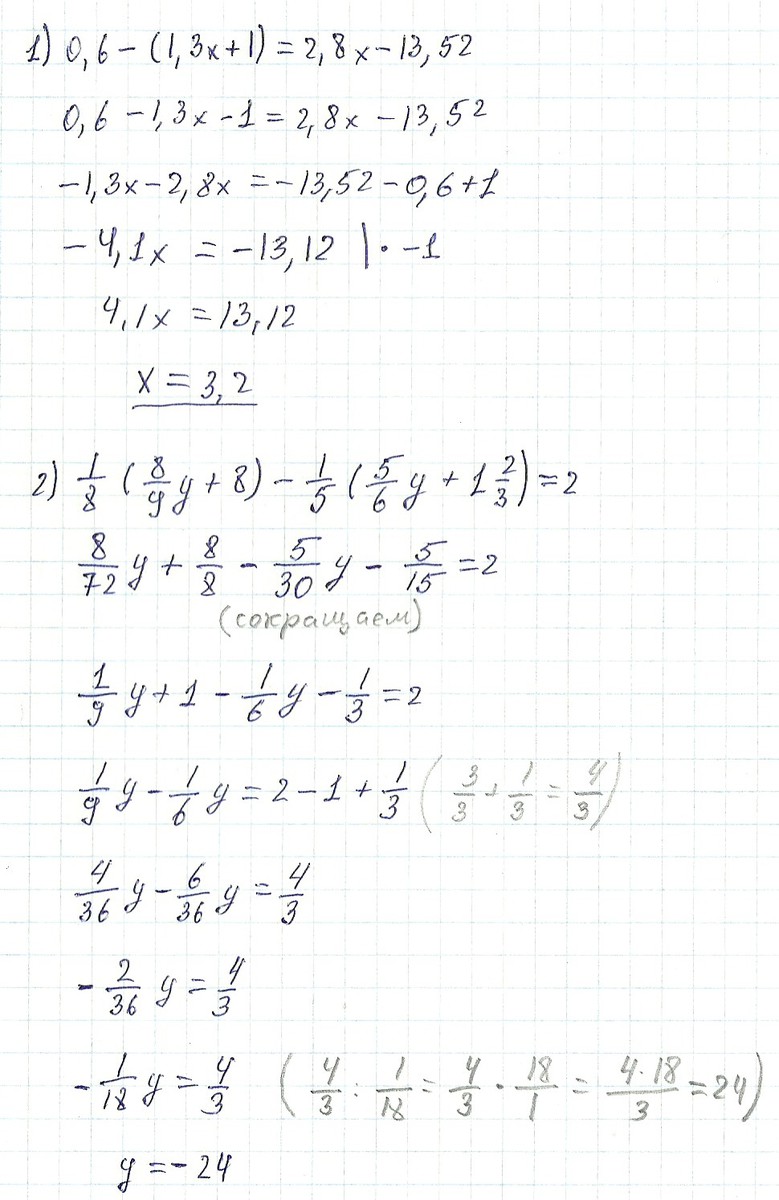 1) 0,6 − (1,3x+1) = 2,8x − 13,52
0,6 − 1,3x − 1 = 2,8x − 13,52
−1,3x − 2,8x = −13,52 − 0,6 + 1
− 4,1x = −13,12 | · −1
4,1x = 13,12
x = 3,2
2) 1/8 (8/9 y + 8) − 1/5 (5/6 y + 1 2/3) = 2
8/72 y + 8/8 − 5/30 y − 5/15 = 2
(сокращаем)
1/9 y + 1 − 1/6 y − 1/3 = 2
1/9 y − 1/6 y = 2 − 1 + 1/3 (3/3 + 1/3 = 4/3)
4/36 y − 6/36 y = 4/3
− 2/36 y = 4/3
− 1/18 y = 4/3 (4/3 : 1/18 = 4/3 · 18/1 = 4·18/3 = 24)
y = − 24